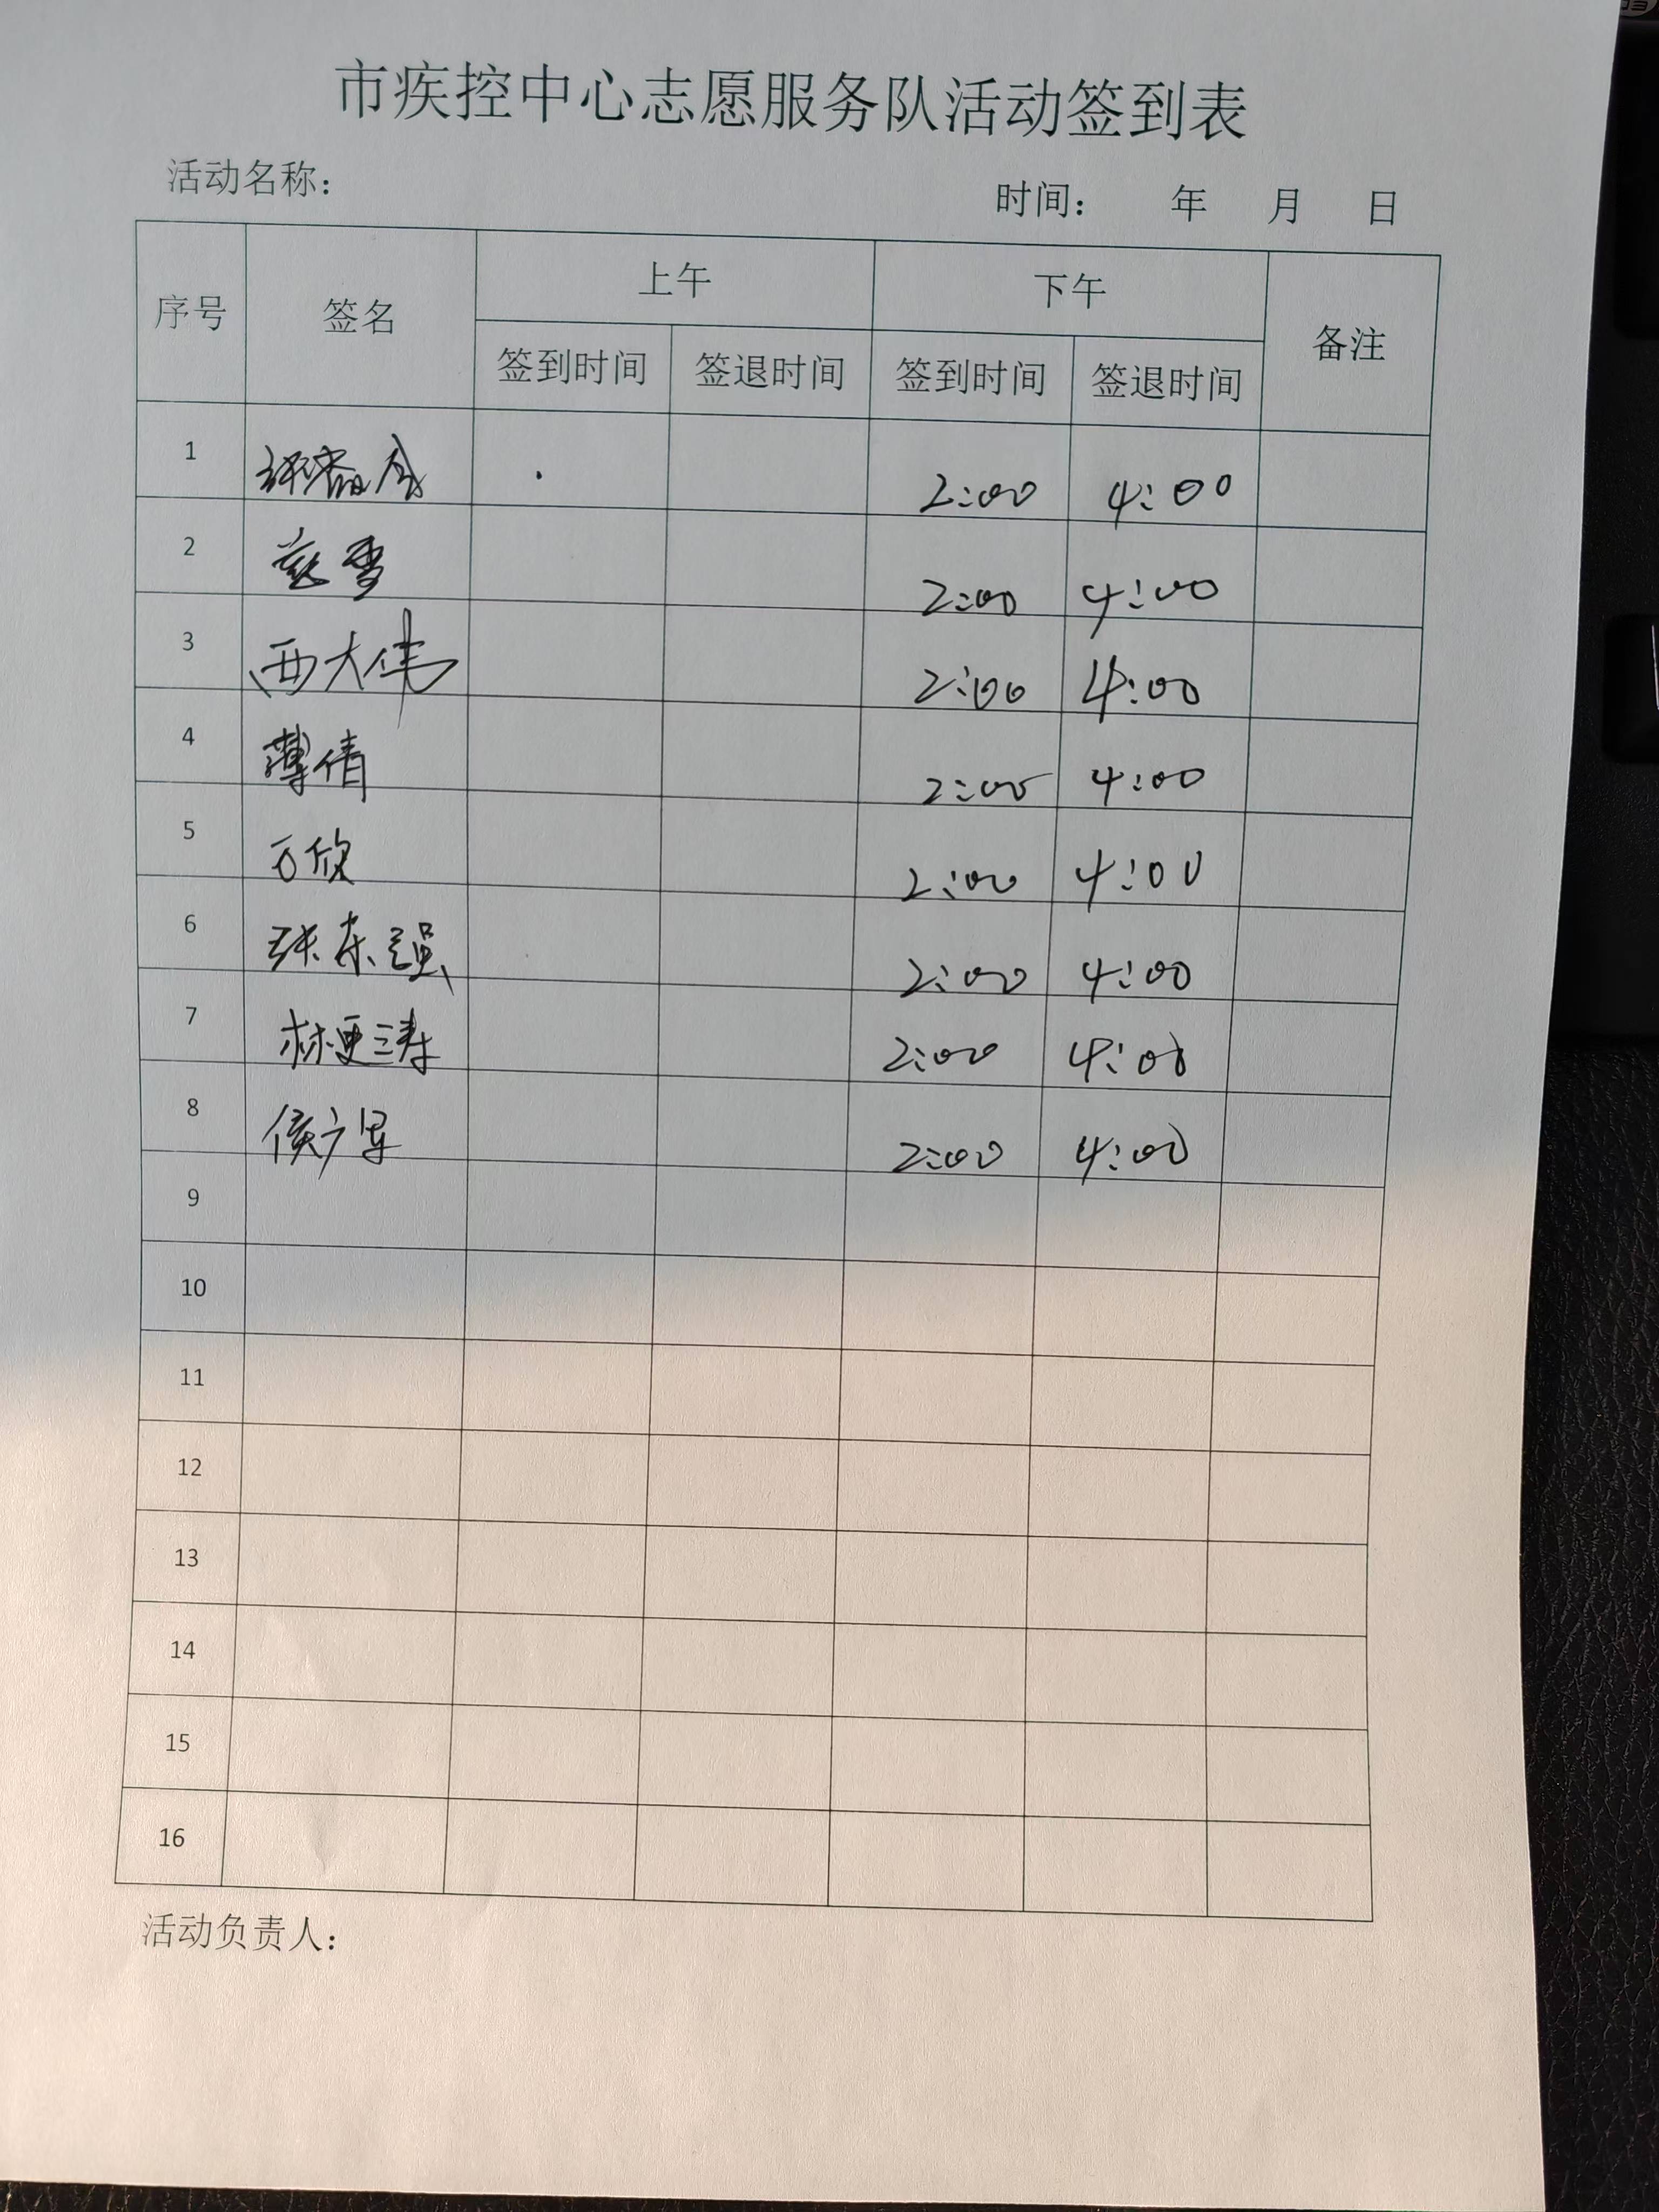 市疾控中心志愿服务队活动签到表
活动名称： 时间： 年 月 日
序号 签名 上午 下午 备注
签到时间 签退时间 签到时间 签退时间
1 2:00 4:00
2 2:00 4:00
3 西大伟 2:00 4:00
4 薄倩 2:00 4:00
5 万欣 2:00 4:00
6 张东强 2:00 4:00
7 林更涛 2:00 4:00
8 侯广军 2:00 4:00
9
10
11
12
13
14
15
16
活动负责人：